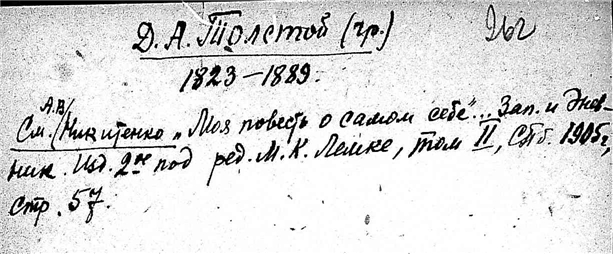 Д. А. Толстой (гр.)
1823–1889.
А.В.
См. Никитенко „Моя повесть о самом себе“.. Зап. и Днев-
ник. Изд. 2ое под ред. М. К. Лемке, том II, СПб. 1905г,
стр. 57.